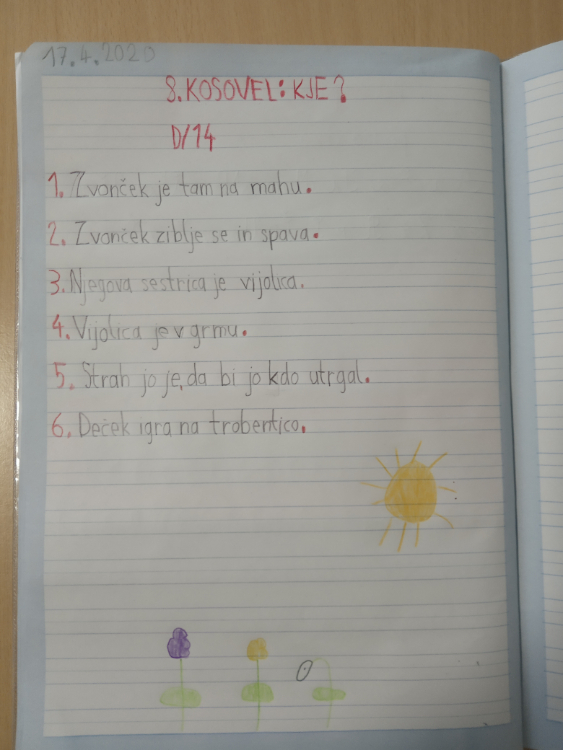 17.4.2020
S. KOSOVEL: KJE?
D/14
1. Zvonček je tam na mahu.
2. Zvonček ziblje se in spava.
3. Njegova sestrica je vijolica.
4. Vijolica je v grmu.
5. Strah jo je, da bi jo kdo utrgal.
6. Deček igra na trobentico.